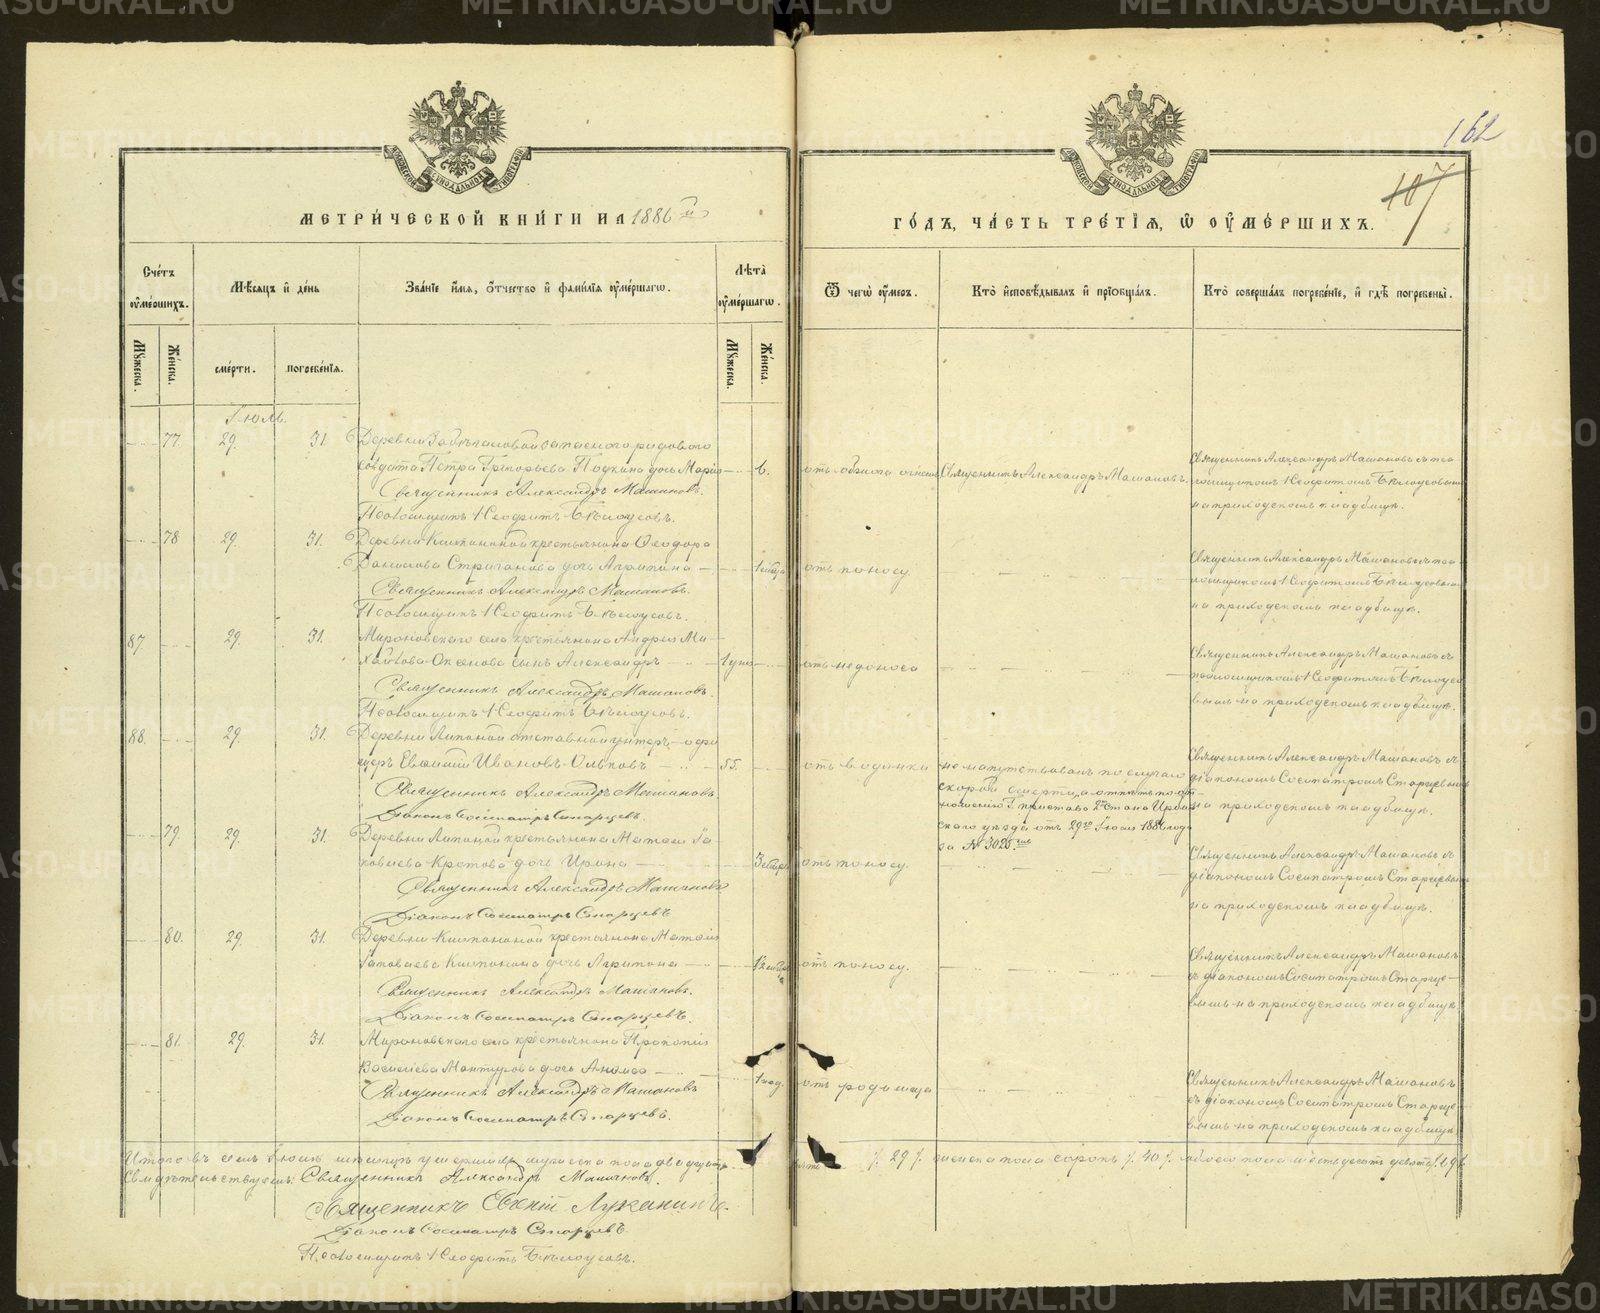 162
107
МЕТРИ́ЧЕСКОЙ КНИ́ГИ НА 1886 й
ГО́ДЪ, ЧА́СТЬ ТРЕ́ТІѦ, Ѡ ОУ҆МЕ́РШИХЪ.
Сче́тъ оу҆ме́ршихъ.
Мѣ́сѧцъ и҆ де́нь
Зва́нїе и҆́мѧ, ѻ҆́тчество и҆ фами́лїѧ оу҆ме́ршагѡ.
Лѣта̀ оу҆ме́ршагѡ.
Ѿ чегѡ̀ оу҆́меръ.
Кто̀ и҆сповѣ́дывалъ и҆ прїѡбща́лъ.
Кто̀ соверша́лъ погребе́нїе, и҆ гдѣ̀ погребены̀.
Мꙋ́жеска.
Же́нска.
сме́рти.
погребе́нїѧ.
Мꙋ́жеска.
Же́нска.
Іюль.
77. 29. 31. Деревни запаснаго рядового
солдата Петра Григорьева дочь Марія 6.
Священникъ Александръ Машановъ.
Псаломщикъ Неофитъ Бѣлоусовъ.
отъ Священникъ Александръ Машановъ.
Священникъ Александръ Машановъ съ псаломщикомъ Неофитомъ Бѣлоусовымъ
на приходскомъ кладбищѣ.
78 29. 31. Деревни крестьянина Ѳеодора
Данилова Стриганова дочь Агрипина
Священникъ Александръ Машановъ.
Псаломщикъ Неофитъ Бѣлоусовъ.
отъ поносу.
Священникъ Александръ Машановъ съ псаломщикомъ Неофитомъ Бѣлоусовымъ
на приходскомъ кладбищѣ.
87. 29 31. Мироновскаго села крестьянина Андрея Михайлова сынъ Александръ
Священникъ Александръ Машановъ.
Псаломщикъ Неофитъ Бѣлоусовъ.
отъ недоноса
Священникъ Александръ Машановъ съ
псаломщикомъ Неофитомъ Бѣлоусовымъ на приходскомъ кладбищѣ.
88. 29 31. Деревни Липиной отставной унтеръ-офицеръ Евѳимій Ивановъ Ольковъ 55.
Священникъ Александръ Машановъ.
Діаконъ Сосипатръ Старцевъ.
отъ водянки
не напутствованъ по случаю
скорой смерти, а отпѣтъ по отношенію Г. пристава 2 стана Ирбитскаго уѣзда отъ 29го Іюля 1886 года
за № 3025.
Священникъ Александръ Машановъ съ
діакономъ Сосипатромъ Старцевымъ
на приходскомъ кладбищѣ.
79. 29 31. Деревни Липиной крестьянина Матѳея Іаковлева дочь Ирина
Священникъ Александръ Машановъ
Діаконъ Сосипатръ Старцевъ
отъ поносу.
Священникъ Александръ Машановъ съ
діакономъ Сосипатромъ Старцевымъ
на приходскомъ кладбищѣ.
80. 29. 31. Деревни крестьянина Матѳея
дочь Агрипина
Священникъ Александръ Машановъ.
Діаконъ Сосипатръ Старцевъ.
отъ поносу.
Священникъ Александръ Машановъ
съ діакономъ Сосипатромъ Старцевымъ на приходскомъ кладбищѣ.
81. 29. 31. Мироновскаго села крестьянина Прокопія
Васильева Мантурова дочь Анѳиса 1 год.
Священникъ Александръ Машановъ
Діаконъ Сосипатръ Старцевъ.
отъ родимца
Священникъ Александръ Машановъ
съ діакономъ Сосипатромъ Старцевымъ на приходскомъ кладбищѣ
Итого въ семъ Іюлѣ мѣсяцѣ умершихъ мужеска пола двадцать /. 29 /. женска пола сорокъ /. 40 /. обоего пола шестьдесятъ девять
Свидѣтельствуемъ: Священникъ Александръ Машановъ.
Священникъ Евѳимій Луканинъ.
Діаконъ Сосипатръ Старцевъ.
Псаломщикъ Неофитъ Бѣлоусовъ.
METRIKI.GASO-URAL.RU